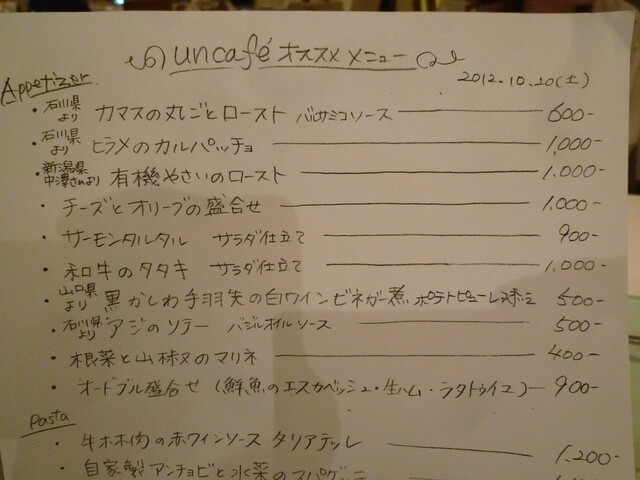 uncafé オススメ メニュー
2012.10.20(土)
Appetizer
・石川県より カマスの丸ごとロースト バルサミコソース 600-
・石川県より ヒラメのカルパッチョ 1,000-
・新潟県中澤さんより 有機やさいのロースト 1,000-
・チーズとオリーブの盛合せ 1,000-
・サーモンタルタル サラダ仕立て 900-
・和牛のタタキ サラダ仕立て 1,000-
・山口県より 黒かしわ手羽先の白ワインビネガー煮 ポテトピューレ添え 500-
・石川県より アジのソテー バジルオイルソース 500-
・根菜と山椒のマリネ 400-
・オードブル盛合せ (鮮魚のエスカベッシュ・生ハム・ラタトゥイユ) 900-
Pasta
・牛ホホ肉の赤ワインソース タリアテッレ 1,200-
自家製アンチョビと水菜のスパゲティ